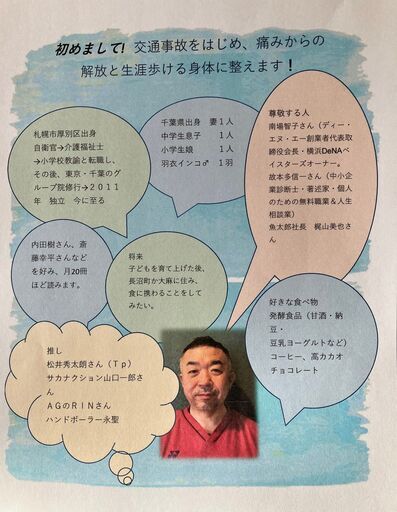 初めまして! 交通事故をはじめ、痛みからの
解放と生涯歩ける身体に整えます！
札幌市厚別区出身
自衛官→介護福祉士
→小学校教諭と転職し、
その後、東京・千葉のグ
ループ院修行→２０１１
年 独立 今に至る
千葉県出身 妻１人
中学生息子 １人
小学生娘 １人
羽衣インコ♂ １羽
尊敬する人
南場智子さん（ディー・
エヌ・エー創業者代表取
締役会長・横浜DeNAベ
イスターズオーナー。
故本多信一さん（中小企
業診断士・著述家・個人
のための無料職業＆人生
相談業）
魚太郎社長 梶山美也さ
ん
内田樹さん、斎
藤幸平さんなど
を好み、月20冊
ほど読みます。
将来
子どもを育て上げた後、
長沼町か大麻に住み、
食に携わることをして
みたい。
好きな食べ物
発酵食品（甘酒・納
豆・
豆乳ヨーグルトなど）
コーヒー、高カカオ
チョコレート
推し
松井秀太朗さん（Ｔｐ）
サカナクション山口一郎さ
ん
ＡＧのＲＩＮさん
ハンドボーラー永聖
YONEX